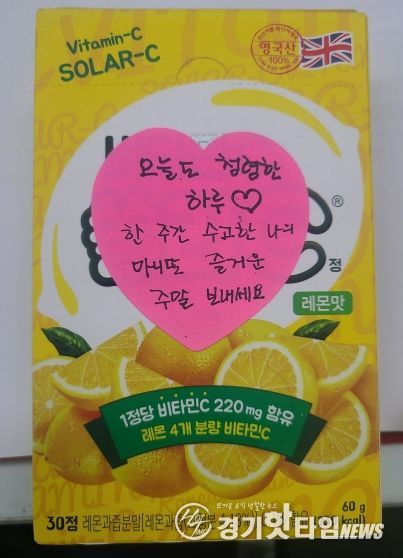 Vitamin-C
SOLAR-C
영국산
100%
오늘도 청렴한
하루♡
한 주간 수고한 나의
마니또 즐거운
주말 보내세요
®
정
레몬맛
1정당 비타민C 220mg 함유
레몬 4개 분량 비타민C
30정 레몬과즙분말(레몬과
60 g
kcal)
경기핫타임뉴스